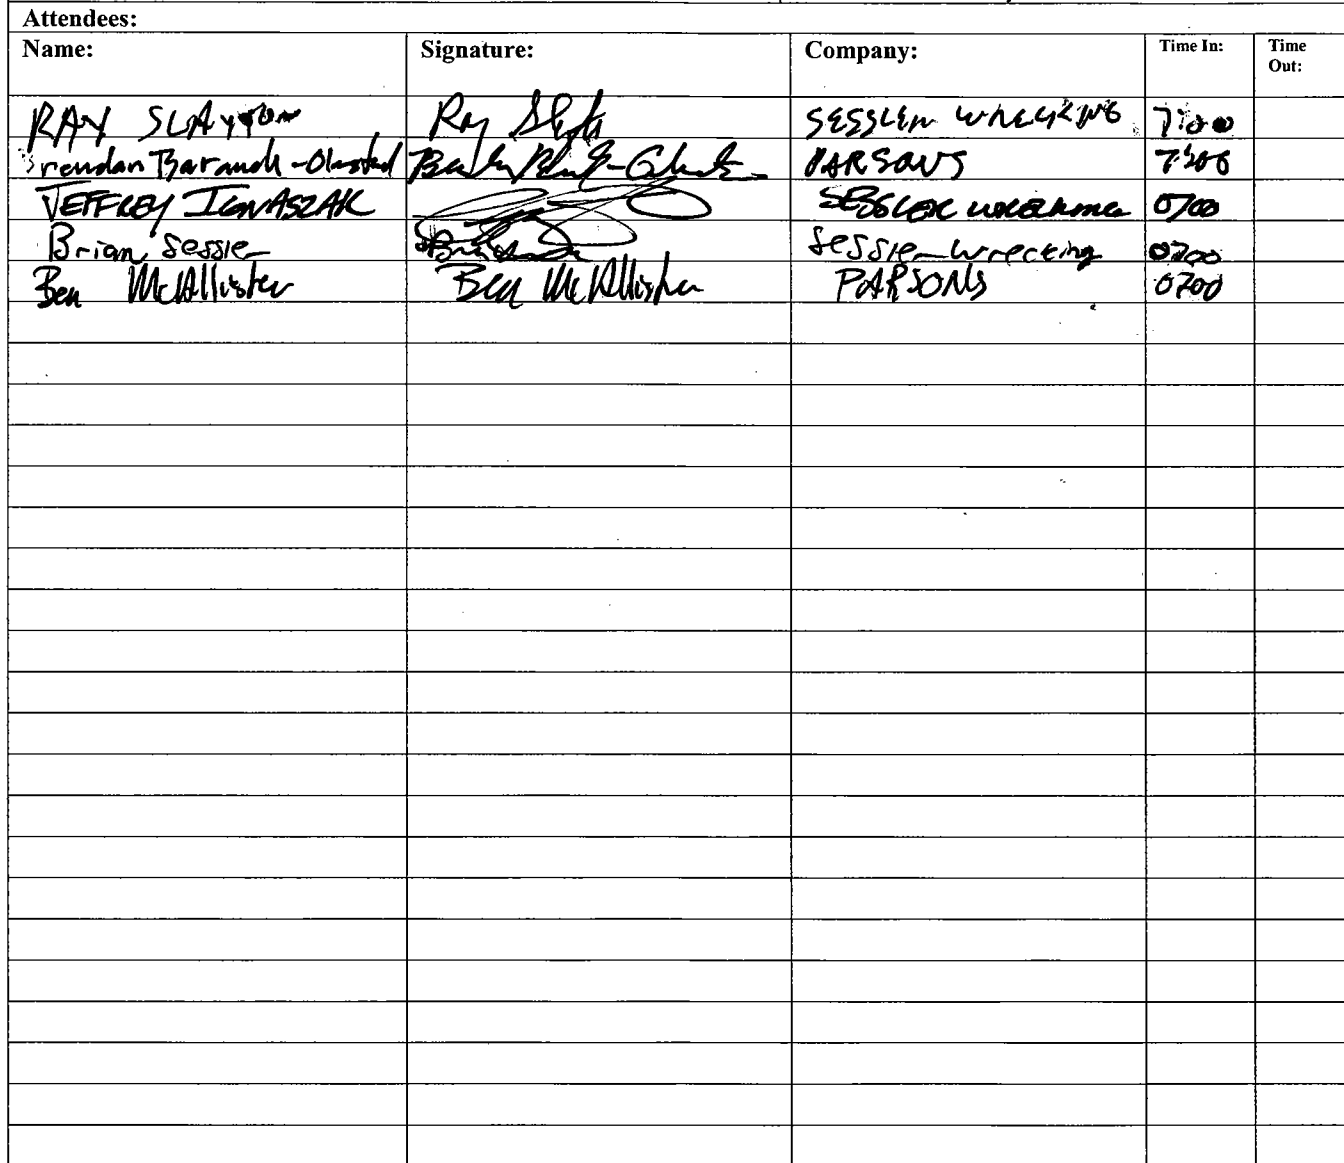 Attendees:
Name: Signature: Company: Time In: Time Out:
RAY SLAYTON Ray SESSLER WRECKING 7:00
Brendan Baranek-Olmstead PARSONS 7:00
JEFFREY IGNASZAK SESSLER WRECKING 0700
Brian Sessler Sessler Wrecking 0700
Ben McAllister Ben McAllister PARSONS 0700